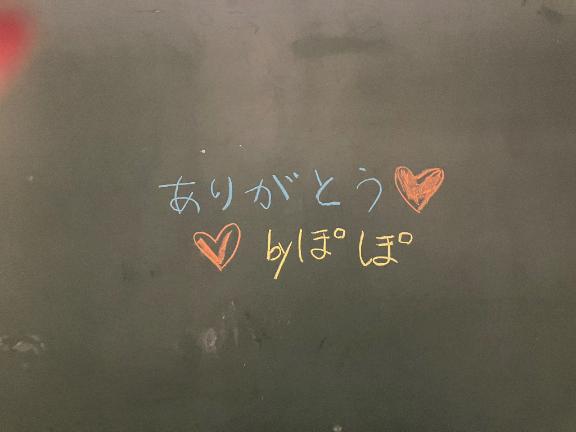 ありがとう♡
♡ byぽぽ